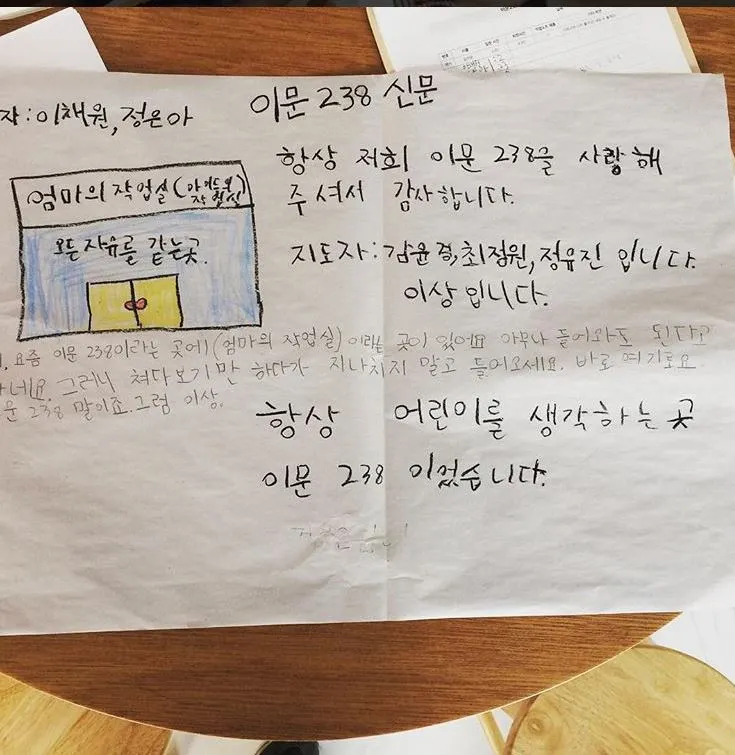 자:이채원,정은아
이문 238 신문
항상 저희 이문 238을 사랑해
주셔서 감사합니다.
엄마의 작업실(아이들의 작업실)
모든자유를 같는곳.
지도자:김윤결,최정원,정유진 입니다.
이상입니다.
요즘 이문 238이라는 곳에(엄마의 작업실)이라는 곳이 있어요 아무나 들어와도 된다고
하네요. 그러니 쳐다보기만 하다가 지나치지 말고 들어오세요. 바로 여기로요
이문 238 말이죠. 그럼 이상.
항상 어린이를 생각하는 곳
이문 238 이었습니다.